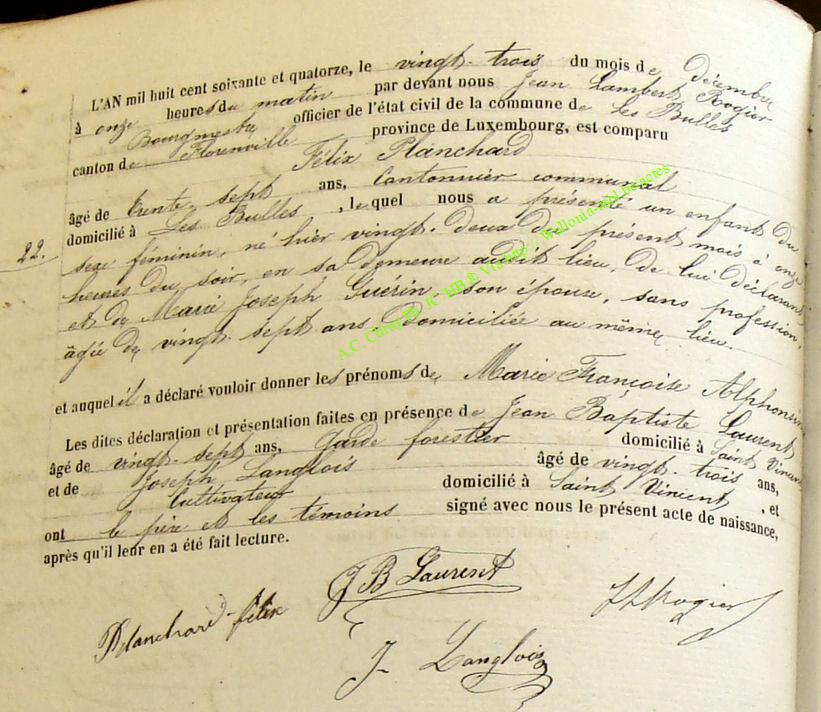 L'AN mil huit cent soixante et quatorze, le vingt-trois du mois de Décembre
à onze heures du matin par devant nous Jean Lambert Rogier
Bourgmestre officier de l'état civil de la commune de Les Bulles
canton de Florenville province de Luxembourg, est comparu
Félix Planchard
âgé de trente sept ans, Cantonnier communal
domicilié à Les Bulles, lequel nous a présenté un enfant du
22. sexe féminin, né hier vingt-deux du présent mois à onze
heures du soir, en sa demeure audit lieu, de lui déclarant
et de Marie Joseph Guérin, son épouse, sans profession,
âgée de vingt-sept ans domiciliée au même lieu.
et auquel il a déclaré vouloir donner les prénoms de Marie Françoise Alphonsine
Les dites déclaration et présentation faites en présence de Jean Baptiste Laurent
âgé de vingt-sept ans, garde forestier domicilié à Saint Vincent
et de Joseph Langlois âgé de vingt-trois ans,
Cultivateur domicilié à Saint Vincent, et
ont le père et les témoins signé avec nous le présent acte de naissance,
après qu'il leur en a été fait lecture.
Planchard félix
J B Laurent
J L Rogier
J Langlois